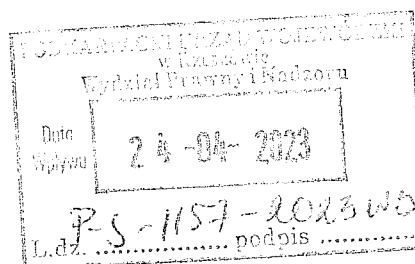 PODKARPACKI URZĄD WOJEWÓDZKI
w Rzeszowie
Wydział Prawny i Nadzoru
Data
Wpływu
24 -04- 2023
L.dz. P-S-1157-2023 podpis